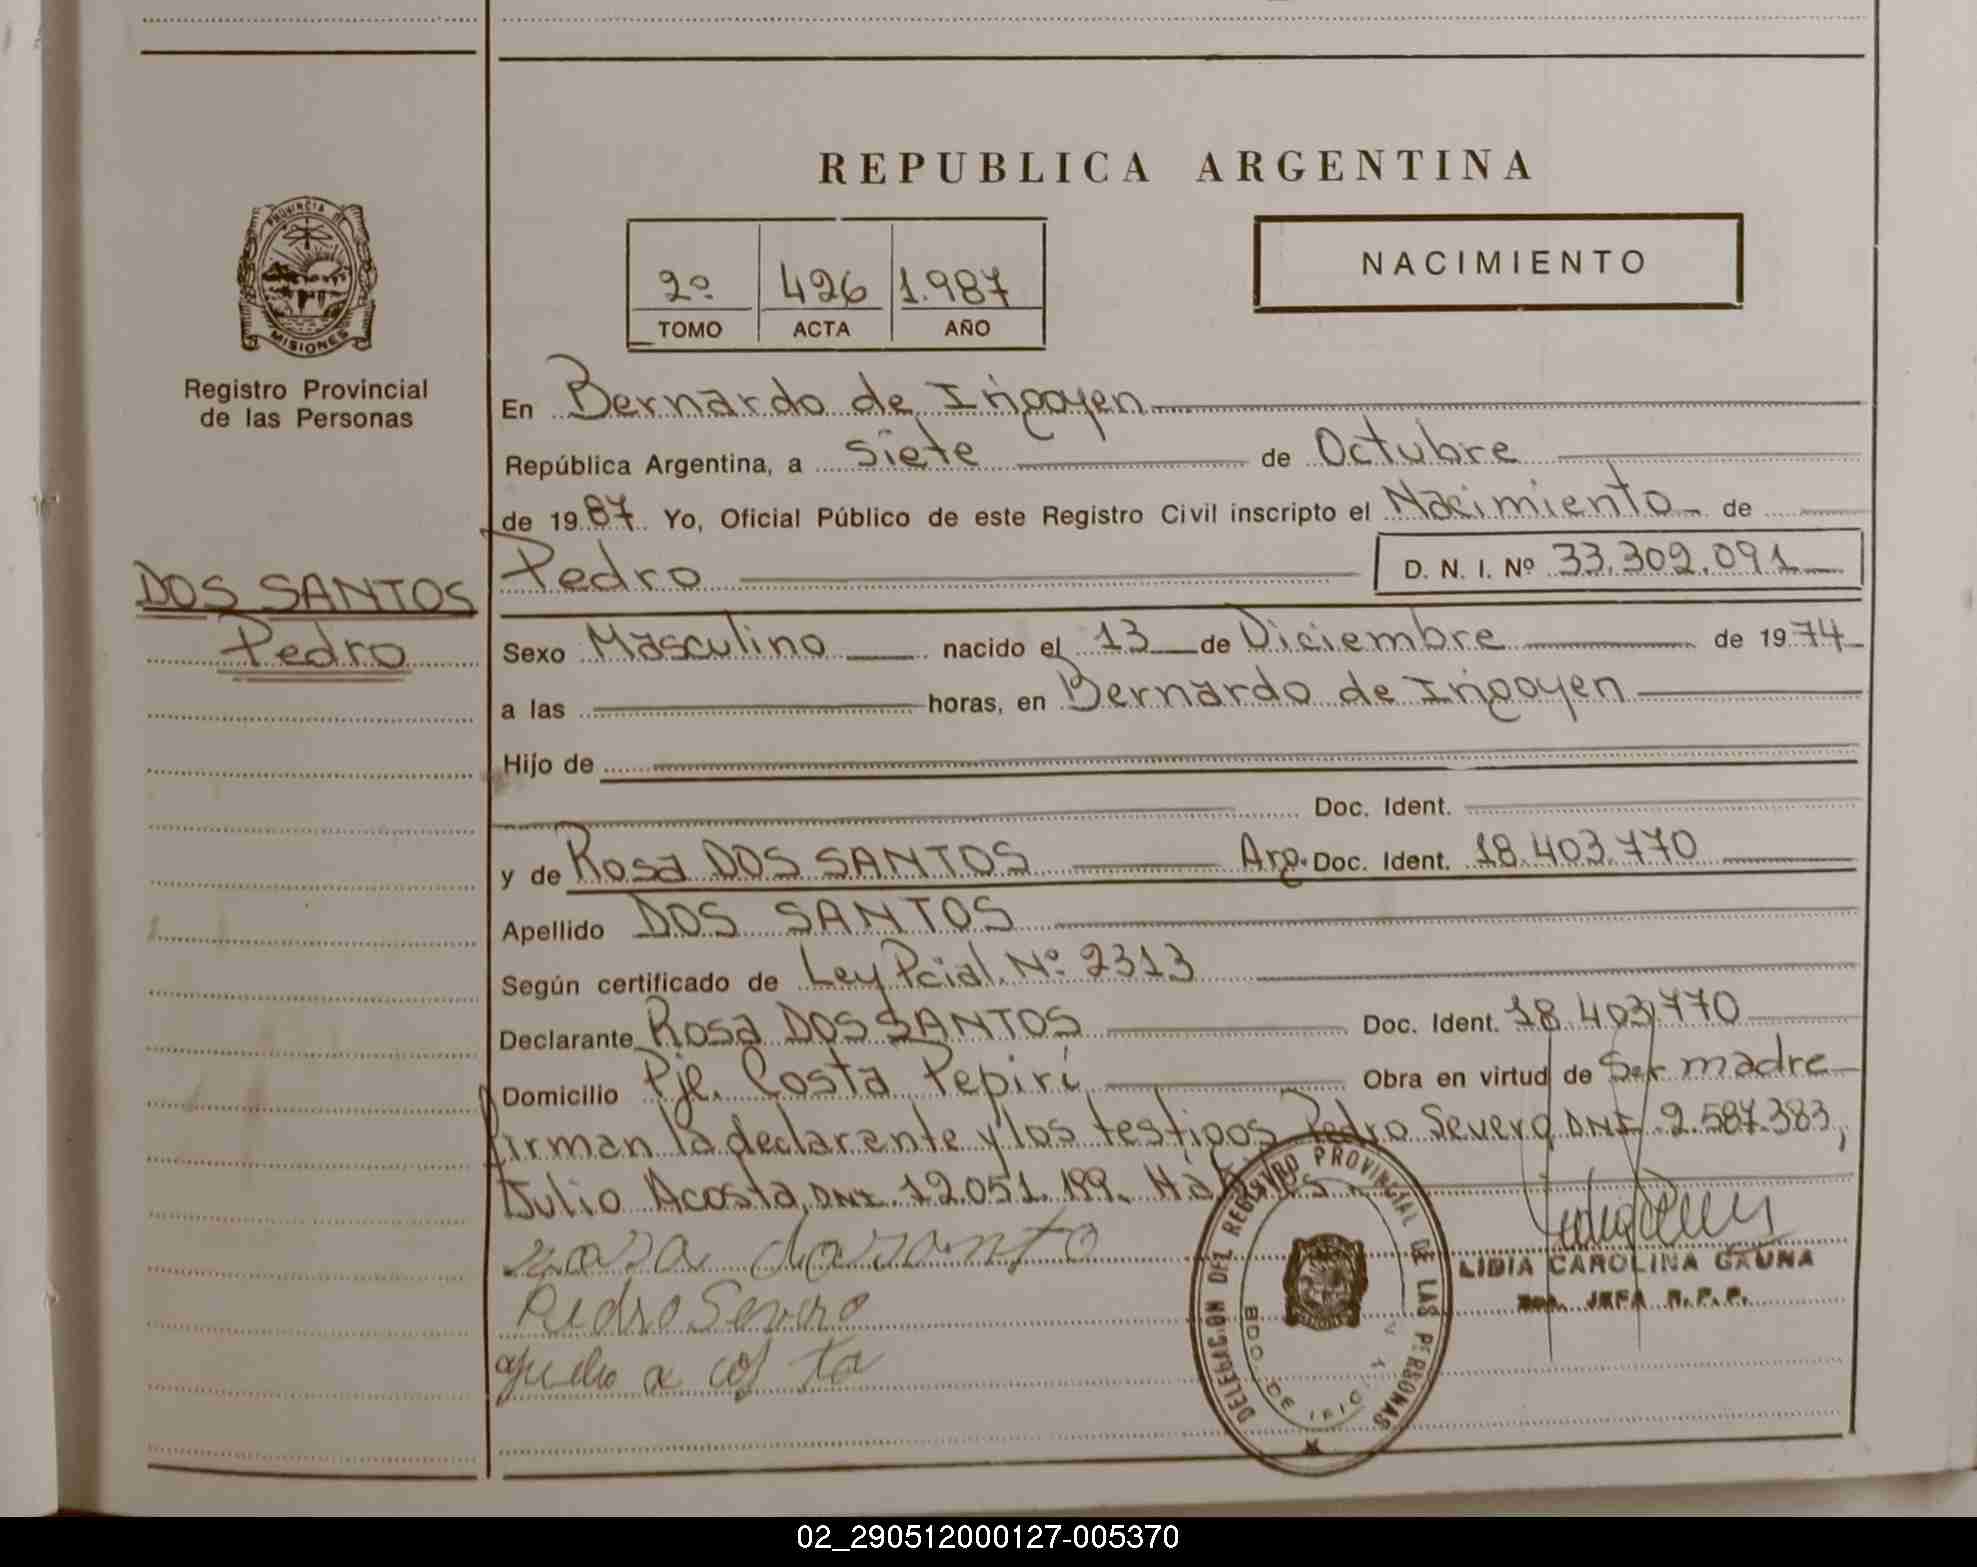 REPUBLICA ARGENTINA
PROVINCIA DE
MISIONES
Registro Provincial
de las Personas
2º 426 1.987
TOMO ACTA AÑO
NACIMIENTO
En Bernardo de Irigoyen
República Argentina, a siete de Octubre
de 1987 Yo, Oficial Público de este Registro Civil inscripto el Nacimiento de
Pedro D. N. I. Nº 33.302.091
DOS SANTOS
Pedro
Sexo Masculino nacido el 13 de Diciembre de 1974
a las horas, en Bernardo de Irigoyen
Hijo de
Doc. Ident.
y de Rosa DOS SANTOS Arg. Doc. Ident. 18.403.770
Apellido DOS SANTOS
Según certificado de Ley Pcial. Nº 2313
Declarante Rosa DOS SANTOS Doc. Ident. 18.403.770
Domicilio Pje. Costa Pepirí Obra en virtud de Ser madre
firman la declarante y los testigos Pedro Severo DNI 2.587.383,
Julio Acosta, DNI. 12.051.199. Hábiles
Pedro Severo
DELEGACION DEL REGISTRO PROVINCIAL DE LAS PERSONAS
BDO. DE IRIGOYEN
LIDIA CAROLINA GAUNA
JEFA R.P.P.
02_290512000127-005370